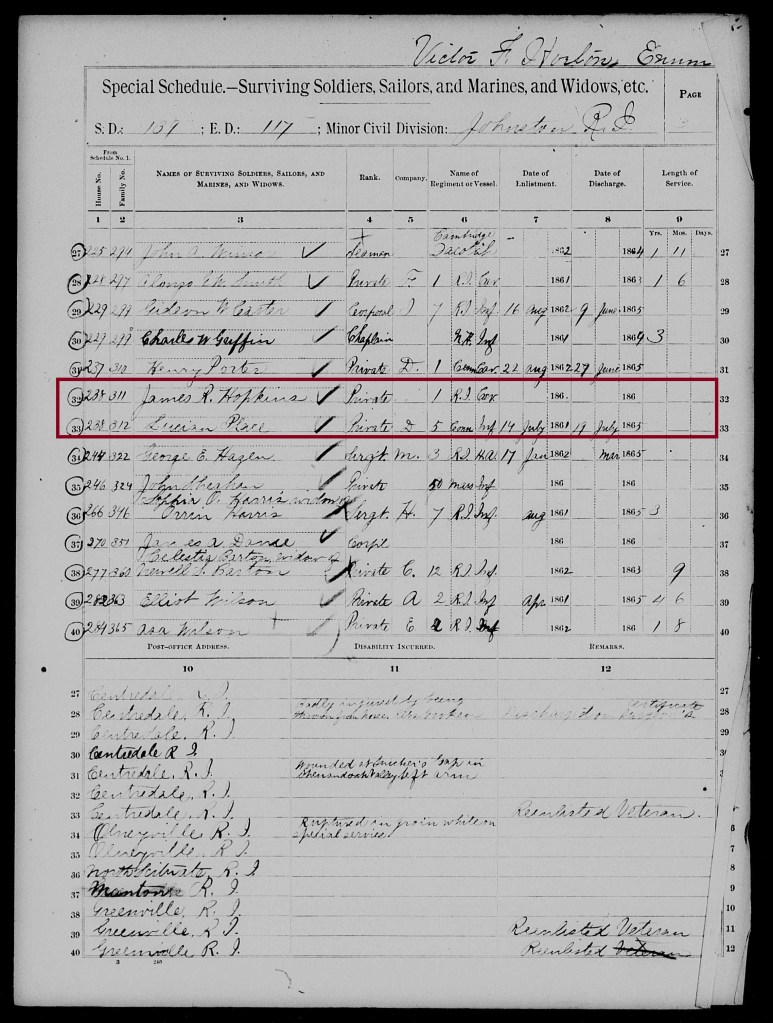 Victor F. Horton, Enum
Special Schedule.—Surviving Soldiers, Sailors, and Marines, and Widows, etc.
PAGE
S. D.: 139 ; E. D.: 117 ; Minor Civil Division: Johnston R. I.
From Schedule No. 1.
House No. Family No. NAMES OF SURVIVING SOLDIERS, SAILORS, AND MARINES, AND WIDOWS. Rank. Company. Name of Regiment or Vessel. Date of Enlistment. Date of Discharge. Length of Service.
1 2 3 4 5 6 7 8 9
Yrs. Mos. Days.
Cambridge
27 225 John Seaman 1862 1864 1 11 27
28 297 Alonzo Smith Private F 1 R.I. Cav 1861 186 1 6 28
29 229 Gideon W Carter Corporal 7 R.I. Inf 16 aug 1862 9 June 1865 29
30 229 299 Charles W Griffin Chaplain N.H. Inf 1861 1864 3 30
31 237 310 Henry Porter Private D. 1 Conn Cav 22 aug 1862 27 June 1865 31
32 238 311 James R. Hopkins Private 1 R.I. Cav 186 186 32
33 238 312 Lucian Place Private D 5 Conn Inf 14 July 1861 19 July 1865 33
34 244 322 George E. Hagen Sergt M. 3 R.I. H.A. 17 Jan 1862 Mar 1865 34
35 246 324 John Private 50 Mass Inf 186 186 35
Sophia O. Harris widow of
36 266 346 Orrin Harris Sergt. H. 7 R.I. Inf. aug 1861 1865 3 36
37 270 351 James Corpl 186 186 37
Celestia Barton, widow of
38 277 360 Newell S. Barton Private C. 12 R.I. Inf. 1862 1863 9 38
39 282 363 Elliot Wilson Private A 2 R.I. Inf Apr 1861 1865 4 6 39
40 284 365 Asa Wilson Private E 2 R.I. Inf 1862 186 1 8 40
POST-OFFICE ADDRESS. DISABILITY INCURRED. REMARKS.
10 11 12
27 Centredale R. I. 27
28 Centredale, R. I. Badly injured by being thrown from horse. Discharged on certificate 28
29 Centredale, R. I.
30 Centredale R I.
31 Centredale, R. I. Wounded at Snicker's Gap in Shenandoah Valley left arm
32 Centredale, R. I.
33 Centredale, R. I. Reenlisted Veteran.
34 Olneyville, R. I. Ruptured in groin while on special service
35 Olneyville, R. I.
36 North Scituate, R. I.
37 Manton R. I.
38 Greenville, R. I.
39 Greenville, R. I. Reenlisted Veteran
40 Greenville R. I. Reenlisted Veteran